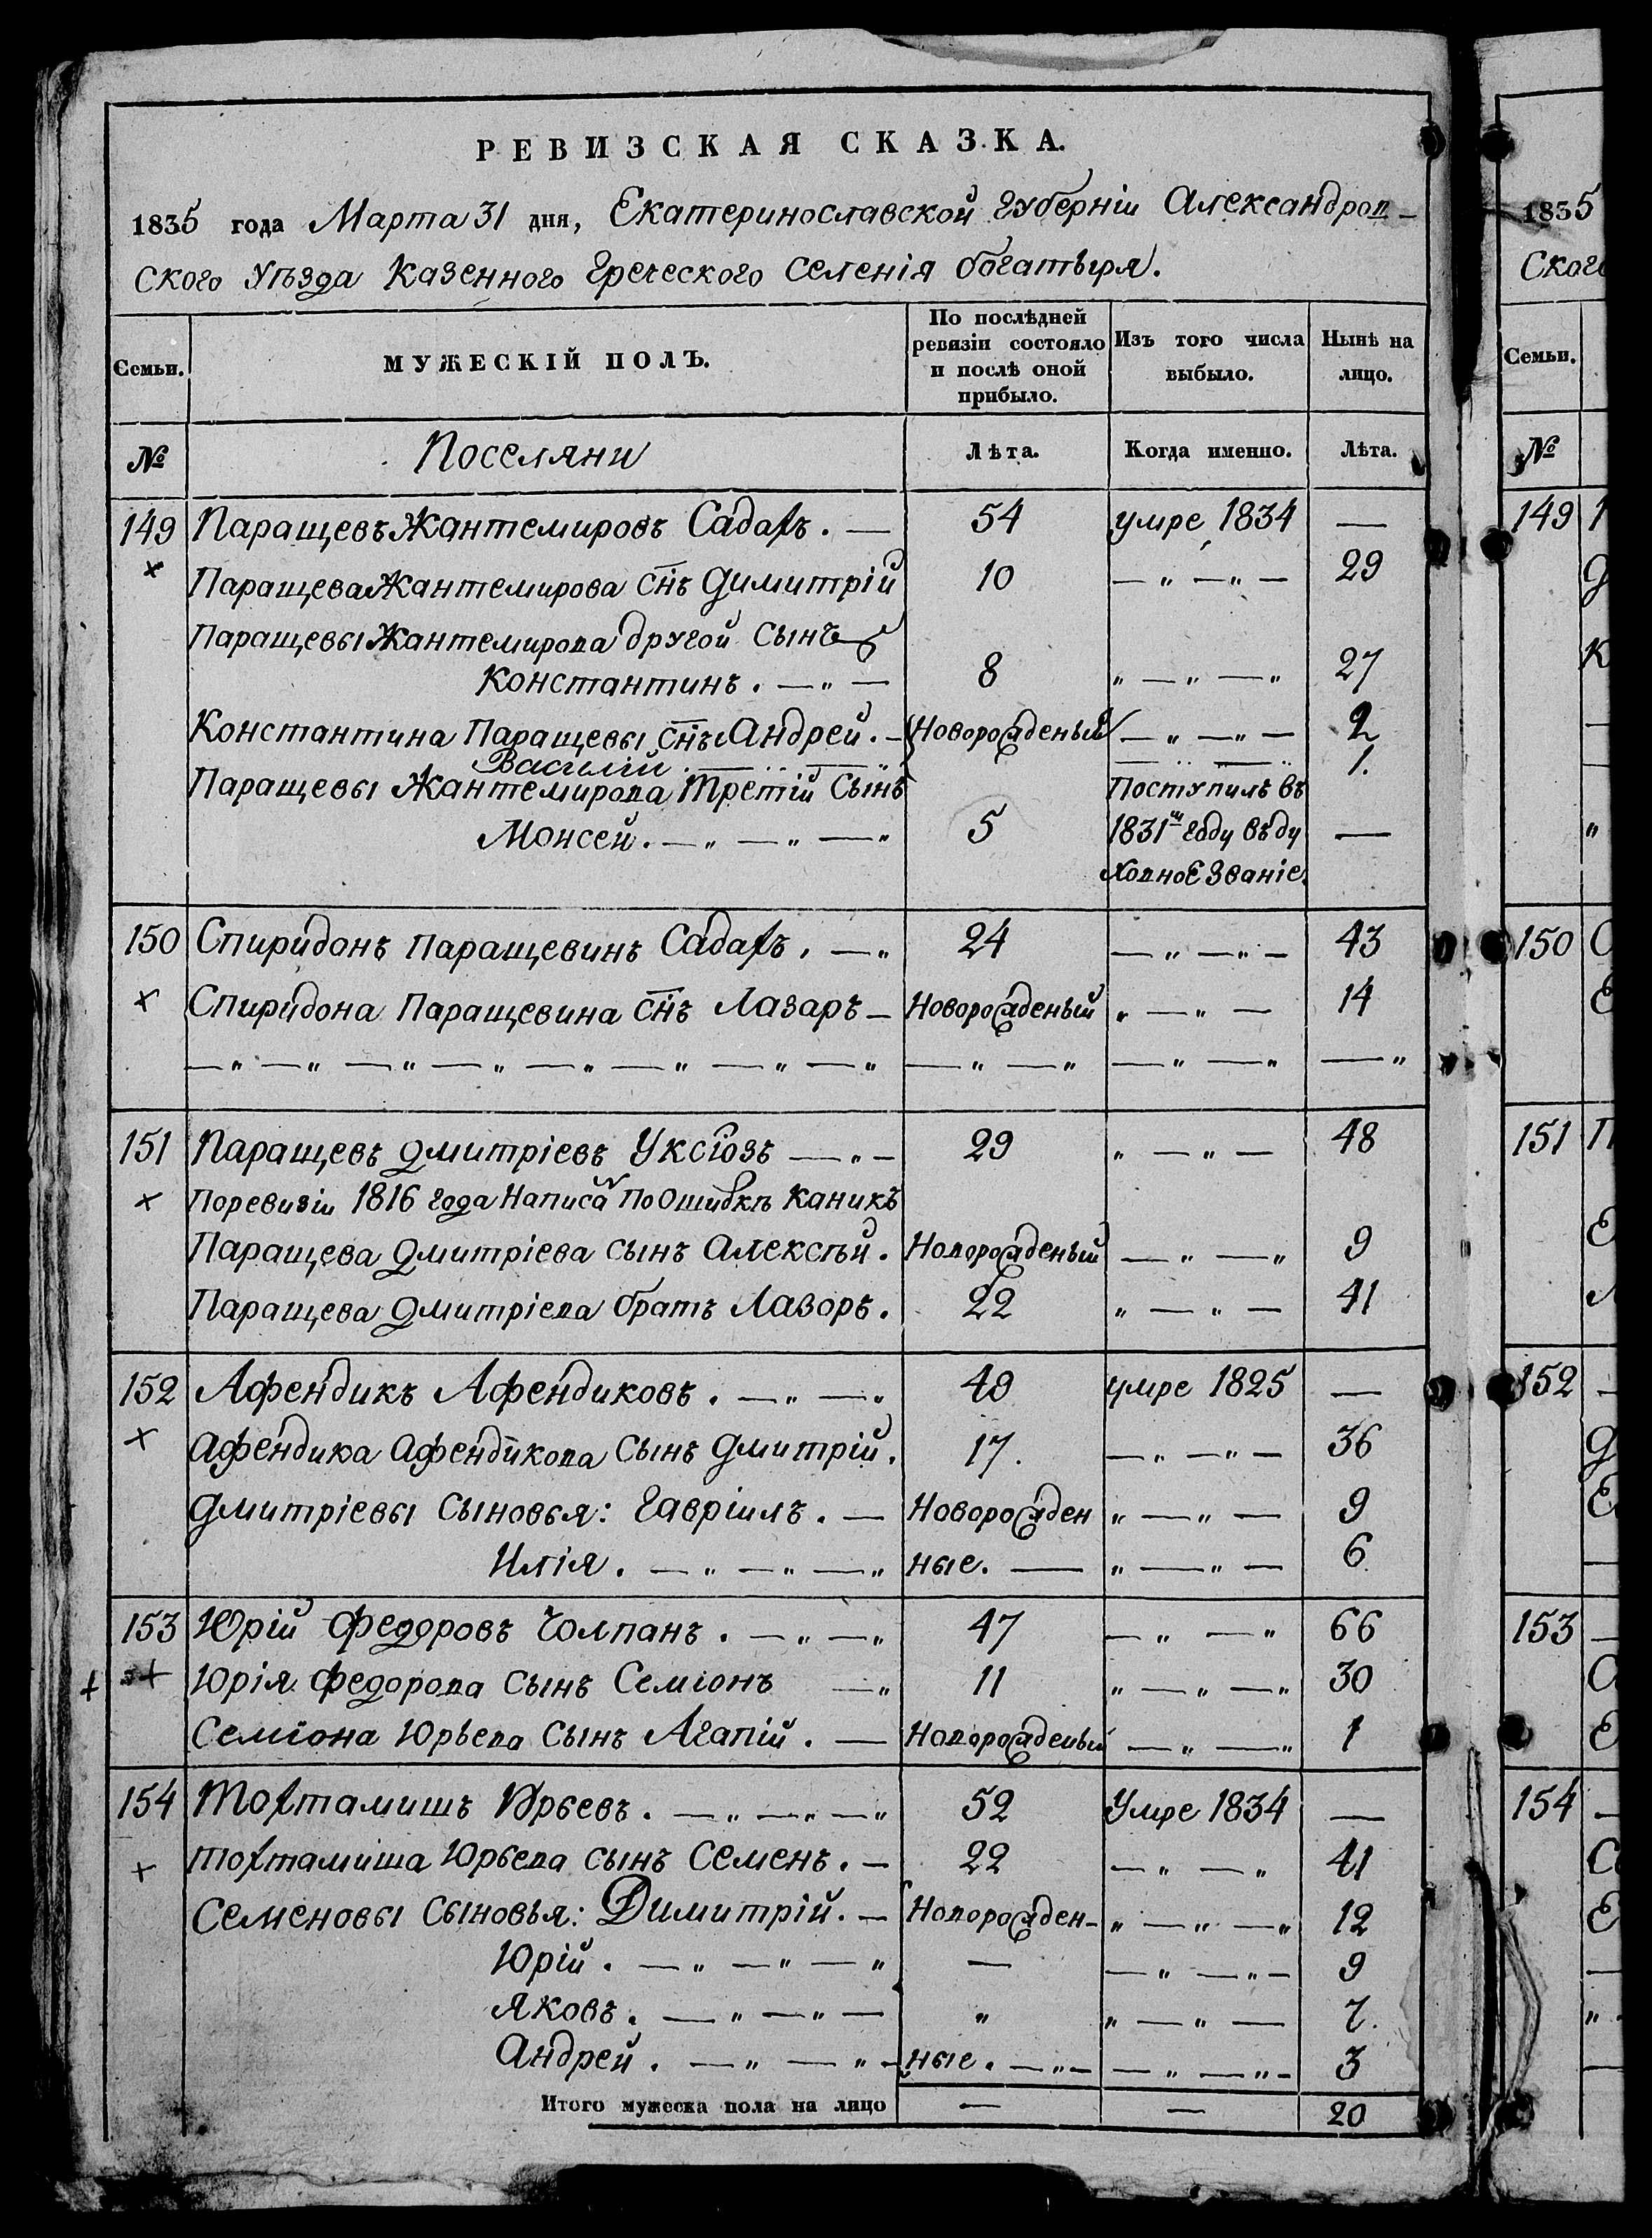 РЕВИЗСКАЯ СКАЗКА.
1835 года Марта 31 дня, Екатеринославской Губерніи Александров-
ского Уѣзда Казенного Греческого Селенія богатыря.
Семьи. МУЖЕСКІЙ ПОЛЪ. По послѣдней ревизіи состояло и послѣ оной прибыло. Изъ того числа выбыло. Нынѣ на лицо.
№ Поселяни Лѣта. Когда именно. Лѣта.
149 Паращевъ Жантемировъ Садахъ. — 54 умре 1834 —
× Паращева Жантемирова снъ Димитрій 10 — „ — „ — 29
Паращевы Жантемирова другой сынъ
Константинъ. — „ — 8 „ — „ — „ 27
Константина Паращевы снъ Андрей. — Новорожденый — „ — „ — 2
Василій 1.
Паращевы Жантемирова третій сынъ Поступилъ въ
Моисей. — „ — „ — „ 5 1831м году въ ду —
ховное званіе.
150 Спиридонъ Паращевинъ Садахъ. — „ 24 — „ — „ — 43
× Спиридона Паращевина снъ Лазаръ — Новорожденый „ — „ — 14
— „ — „ — „ — „ — „ — „ — „ — „ — „ — „ — „ — „ — „
151 Паращевъ Дмитріевъ Уксюзъ — „ — 29 „ — „ — 48
× По ревизіи 1816 года Написа По ошибкѣ каникъ
Паращева Дмитріева сынъ Алексѣй. Новорожденый — „ — „ 9
Паращева Дмитріева братъ Лазоръ. 22 „ — „ — 41
152 Афендикъ Афендиковъ. — „ — „ 49 умре 1825 —
× Афендика Афендикова сынъ Дмитрій. 17. — „ — „ — 36
Дмитріевы сыновья: Гавріилъ. — Новорожден „ — „ — 9
Илія. — „ — „ — „ ные. — „ — „ — 6
153 Юрій Федоровъ Чолпанъ. — „ — „ 47 — „ — „ 66
× Юрія Федорова сынъ Семіонъ — „ 11 „ — „ — „ 30
Семіона Юрьева сынъ Агапій. — Новорожденый — „ — „ 1
154 Тохтамишъ Юрьевъ. — „ — „ — „ 52 Умре 1834 —
× Тохтамиша Юрьева сынъ Семенъ. — 22 — „ — „ 41
Семеновы сыновья: Димитрій. — Новорожден- „ — „ — „ 12
Юрій. — „ — „ — „ — — „ — „ — 9
Яковъ. — „ — „ — „ „ — „ — 7.
Андрей. — „ — „ - ные. — „ — — „ — „ - 3
Итого мужеска пола на лицо — — 20
1835
Ского
Семьи.
№
149
150
151
152
153
154